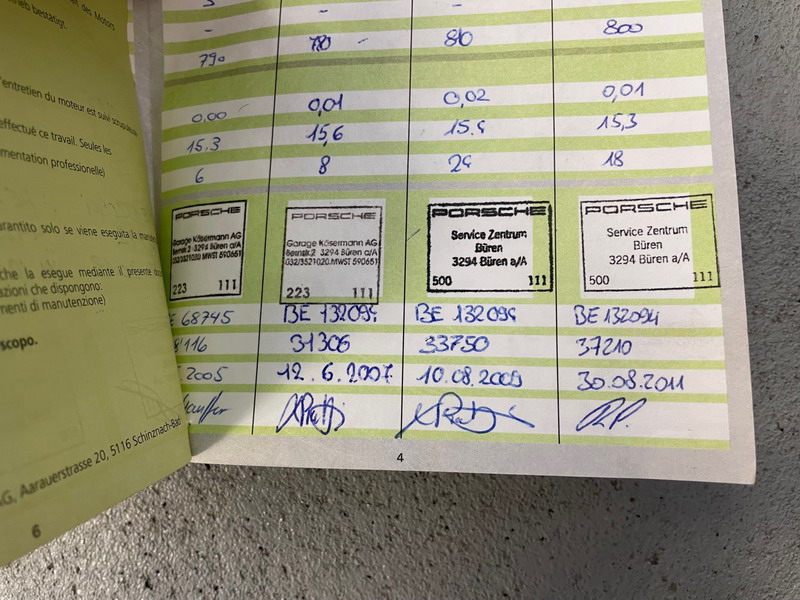 des Motors
bestätigt.
l'entretien du moteur est suivi
effectué ce travail. Seules les
professionelle)
solo se viene eseguita la
che la esegue mediante il presente
che dispongono:
di manutenzione)
scopo.
AG, Aarauerstrasse 20, 5116 Schinznach-Bad
6
- - -
790 780 - 810 800
0,00 0,01 0,02 0,01
15.3 15,6 15.4 15,3
6 8 24 18
PORSCHE
Garage Käsermann AG
3294 Büren a/A
032/3521020 MWST 590651
223 111
PORSCHE
Garage Käsermann AG
3294 Büren a/A
032/3521020 MWST 590651
223 111
PORSCHE
Service Zentrum
Büren
3294 Büren a/A
500 111
PORSCHE
Service Zentrum
Büren
3294 Büren a/A
500 111
68745 BE 132094 BE 132094 BE 132094
31306 33750 37210
2005 12.6.2007 10.08.2009 30.08.2011
4